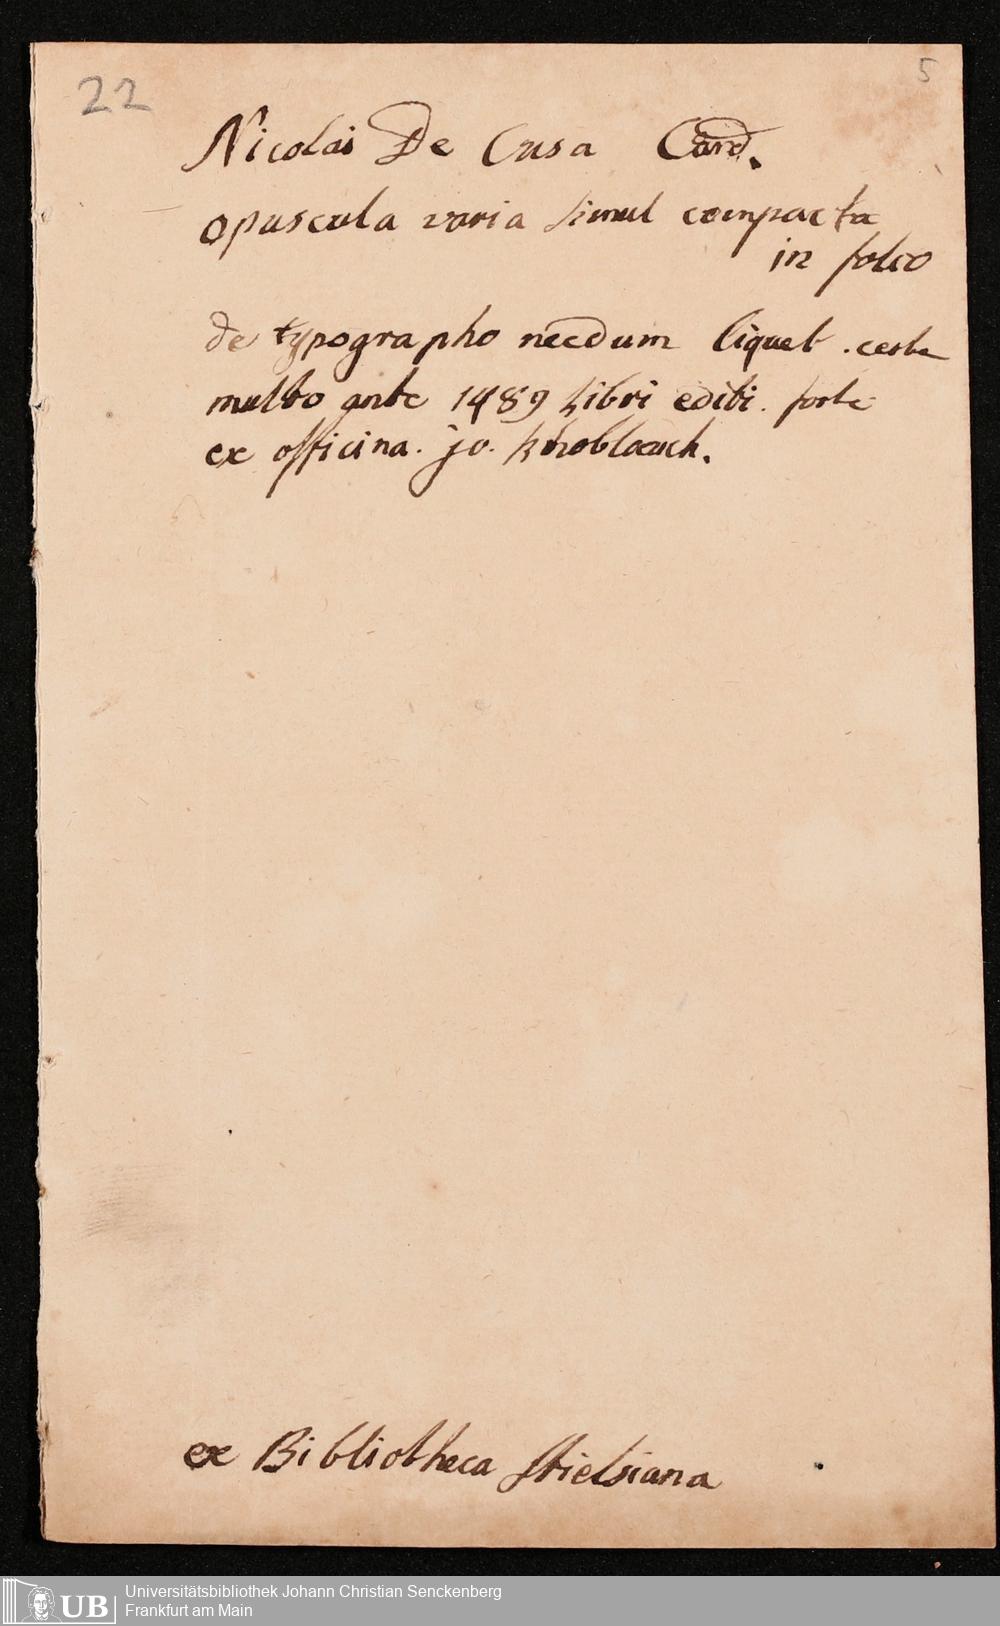 22
5
Nicolai De Cusa Card.
opuscula varia simul compacta
in folio
de typographo necdum liquet. certe
multo ante 1489 libri editi. forte
ex officina. jo. Knoblouch.
ex Bibliotheca Stielsiana
UB
Universitätsbibliothek Johann Christian Senckenberg
Frankfurt am Main